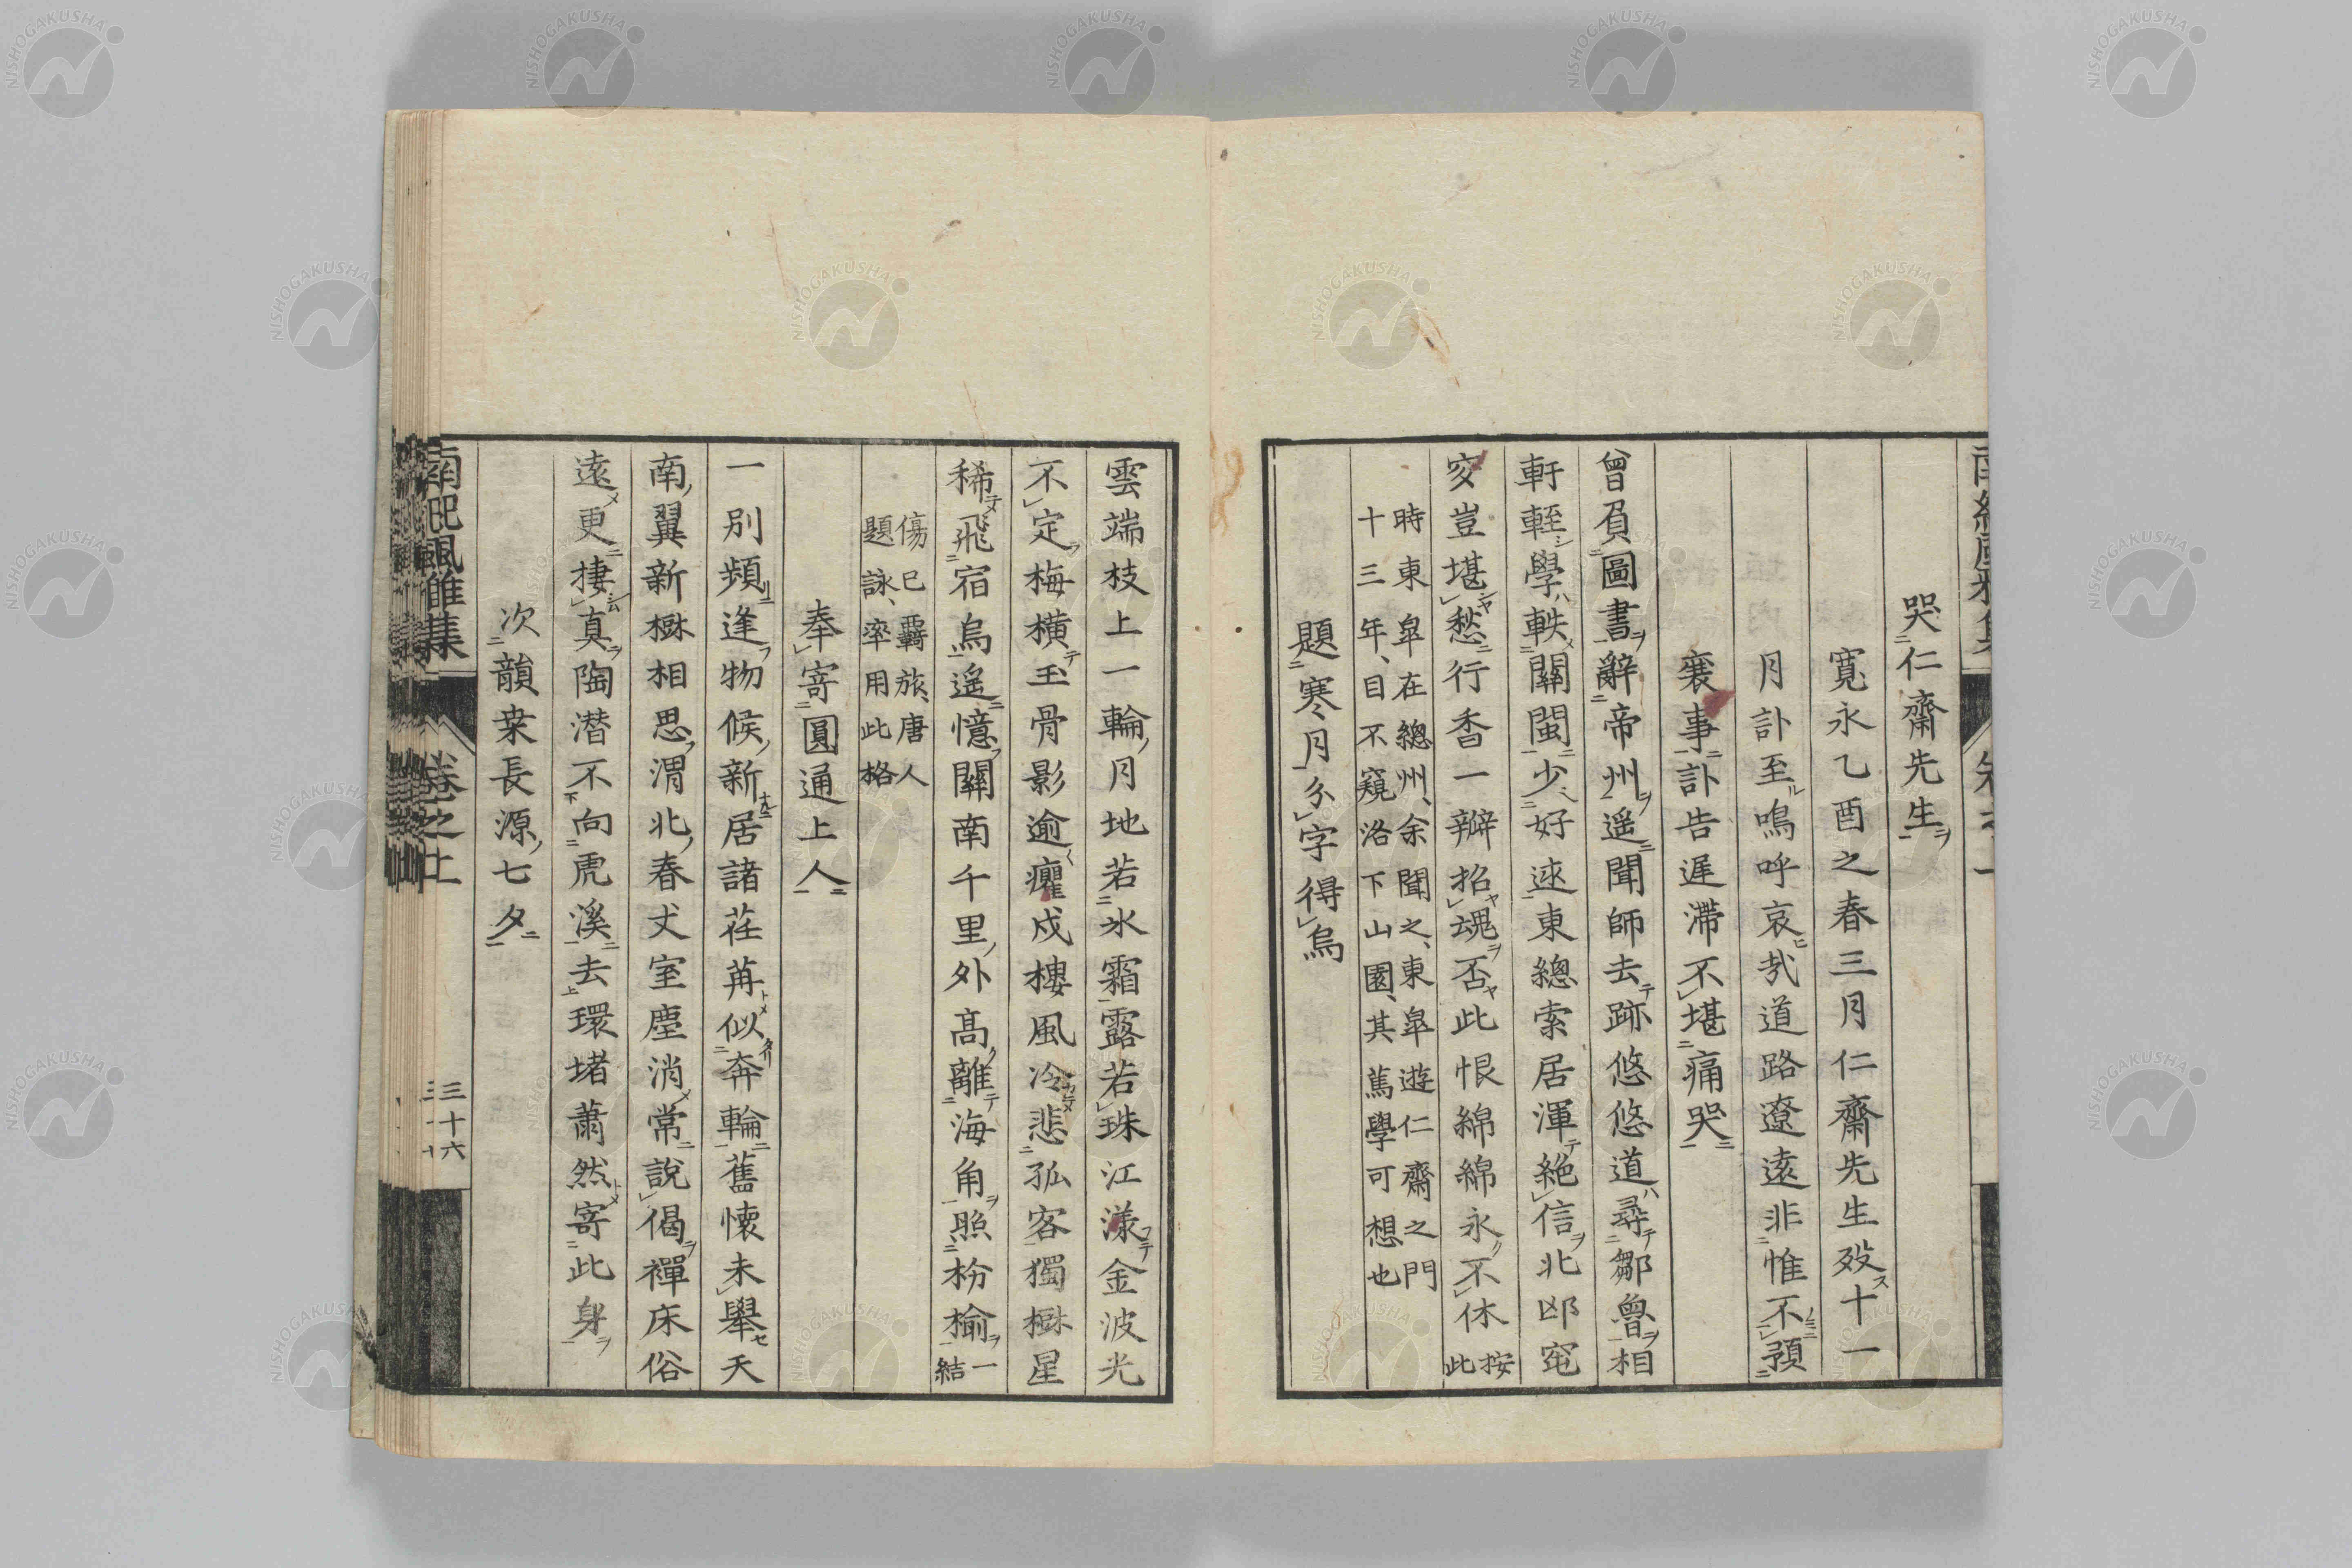 哭仁齋先生
寶永乙酉之春三月仁齋先生歿十一
月訃至嗚呼哀哉道路遼遠非惟不預
襄事訃告遲滯不堪痛哭
曾負圖書辭帝州遥聞師去跡悠悠道尋鄒魯相
軒輊學軼關閩少好逑東總索居渾絶信北邙窀
穸豈堪愁行香一瓣招魂否此恨綿綿永不休 按此
時東皐在總州、余聞之、東皐遊仁齋之門
十三年、目不窺洛下山園、其篤學可想也
題寒月分字得烏
雲端枝上一輪月地若氷霜露若珠江漾金波光
不定梅横玉骨影逾癯戍樓風冷悲孤客獨樹星
稀飛宿烏遥憶關南千里外高離海角照枌榆 一結
傷已羈旅、唐人
題詠、率用此格
奉寄圓通上人
一別頻逢物候新居諸荏苒似奔輪舊懷未舉天
南翼新樹相思渭北春丈室塵消常説偈禪床俗
遠更捿真陶潜不向虎溪去環堵蕭然寄此身
次韻桒長源七夕
南紀風雅集
卷之上
三十六
NISHOGAKUSHA